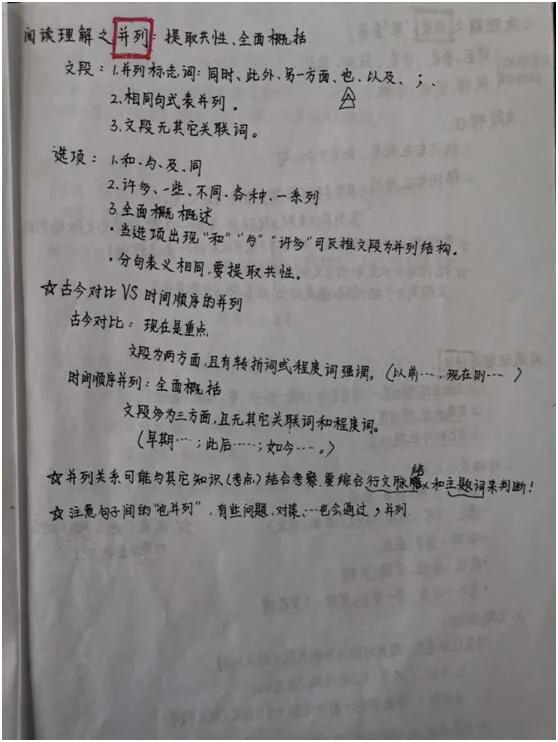 阅读理解之并列：提取共性、全面概括
文段：1.并列标志词：同时、此外、另一方面、也、以及、；、
2.相同句式表并列。
3.文段无其它关联词。
选项：1.和、与、及、同
2.许多、一些、不同、各种、一系列
3.全面概概述
·当选项出现“和”“与”“许多”可反推文段为并列结构。
·分句表义相同，要提取共性。
☆古今对比VS时间顺序的并列
古今对比：现在是重点
文段为两方面，且有转折词或程度词强调。（以前…，现在则…）
时间顺序并列：全面概括
文段多为三方面，且无其它关联词和程度词。
（早期…；此后……；如今…。）
☆并列关系可能与其它知识（考点）结合考察，要综合行文脉络和主题词来判断！
☆注意句子间的“也并列”，有些问题、对策、…也会通过，并列.